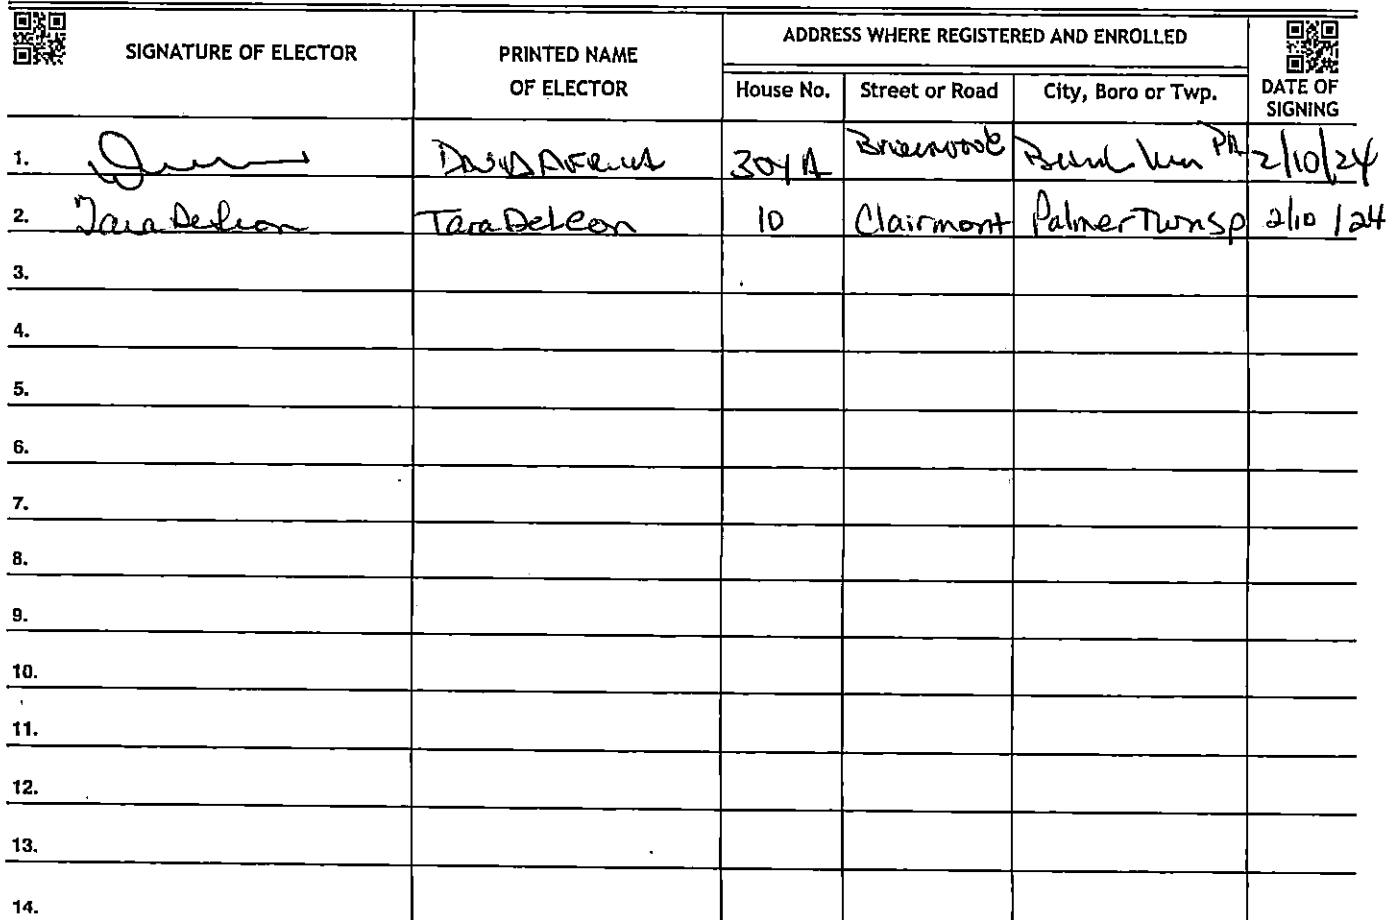 SIGNATURE OF ELECTOR
PRINTED NAME
OF ELECTOR
ADDRESS WHERE REGISTERED AND ENROLLED
House No.
Street or Road
City, Boro or Twp.
DATE OF
SIGNING
1. 304 A PA 2/10/24
2. Tara DeLeon Tara DeLeon 10 Clairmont Palmer Twnsp 2/10/24
3.
4.
5.
6.
7.
8.
9.
10.
11.
12.
13.
14.